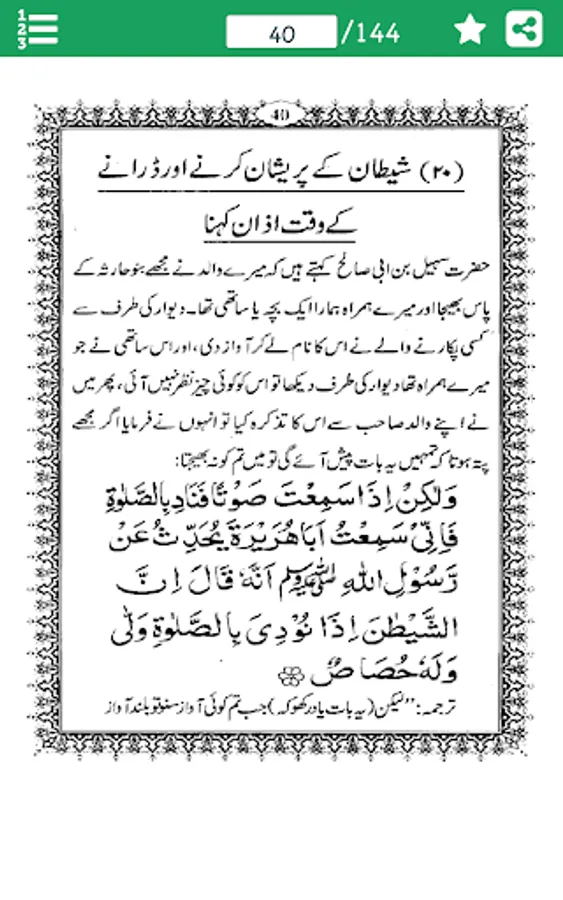 1
2
3
40 /144
40
(۲۰) شیطان کے پریشان کرنے اور ڈرانے
کے وقت اذان کہنا
حضرت سہیل بن ابی صالح کہتے ہیں کہ میرے والد نے مجھے بنو حارثہ کے
پاس بھیجا اور میرے ہمراہ ہمارا ایک بچہ یا ساتھی تھا۔ دیوار کی طرف سے
کسی پکارنے والے نے اس کا نام لے کر آواز دی، اور اس ساتھی نے جو
میرے ہمراہ تھا دیوار کی طرف دیکھا تو اس کو کوئی چیز نظر نہیں آئی، پھر میں
نے اپنے والد صاحب سے اس کا تذکرہ کیا تو انہوں نے فرمایا اگر مجھے
پتہ ہوتا کہ تمہیں یہ بات پیش آئے گی تو میں تم کو نہ بھیجتا:
وَلٰكِنْ اِذَا سَمِعْتَ صَوْتًا فَنَادِ بِالصَّلٰوةِ
فَاِنِّىْ سَمِعْتُ اَبَا هُرَيْرَةَ يُحَدِّثُ عَنْ
رَّسُوْلِ اللهِ ﷺ اَنَّهٗ قَالَ اِنَّ
الشَّيْطٰنَ اِذَا نُوْدِىَ بِالصَّلٰوةِ وَلّٰى
وَلَهٗ حُصَاصٌ
ترجمہ: ’’لیکن (یہ بات یاد رکھو کہ) جب تم کوئی آواز سنو تو بلند آواز